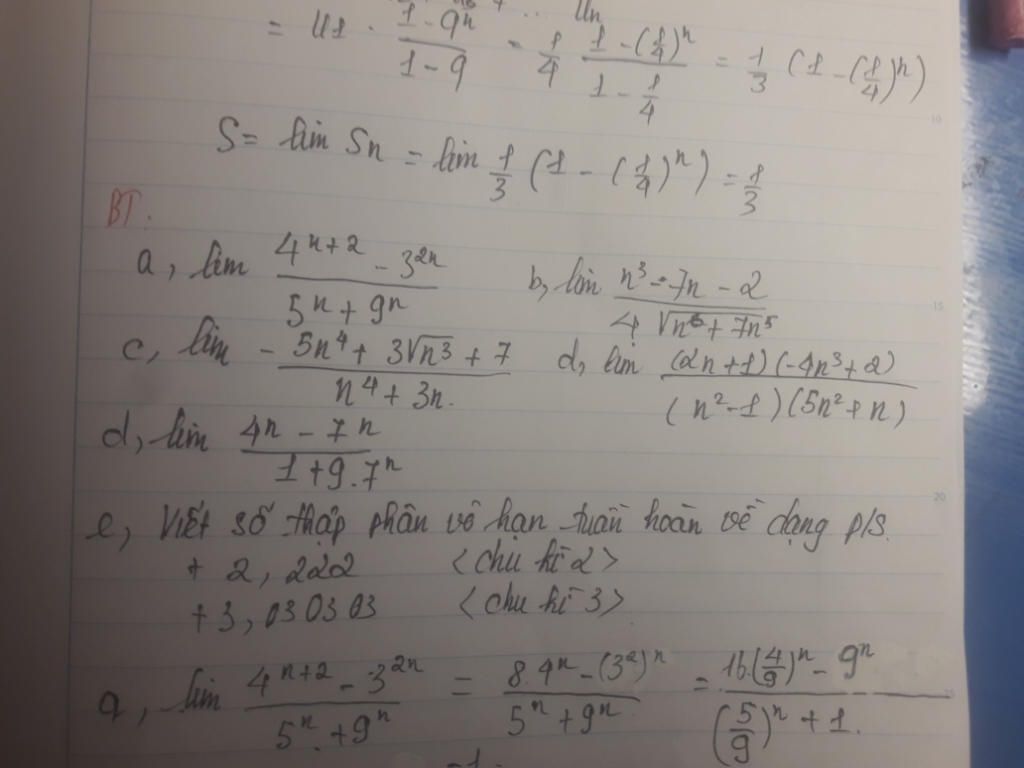 = U1 · (1 - q^n)/(1 - q) = 1/4 · (1 - (1/4)^n)/(1 - 1/4) = 1/3 (1 - (1/4)^n)
S = lim Sn = lim 1/3 (1 - (1/4)^n) = 1/3
BT:
a, lim (4^(n+2) - 3^(2n))/(5^n + 9^n) b, lim (n^3 - 7n - 2)/(4 √(n^6 + 7n^5))
c, lim - (5n^4 + 3√(n^3) + 7)/(n^4 + 3n.) d, lim ((2n+1)(-4n^3+2))/((n^2-1)(5n^2+n))
d, lim (4n - 7^n)/(1 + 9.7^n)
e, Viết số thập phân vô hạn tuần hoàn về dạng p/s.
+ 2,222 <chu kì 2>
+ 3,030303 <chu kì 3>
a, lim (4^(n+2) - 3^(2n))/(5^n + 9^n) = (8.4^n - (3^2)^n)/(5^n + 9^n) = (16.(4/9)^n - 9^n)/((5/9)^n + 1.)
= 1.